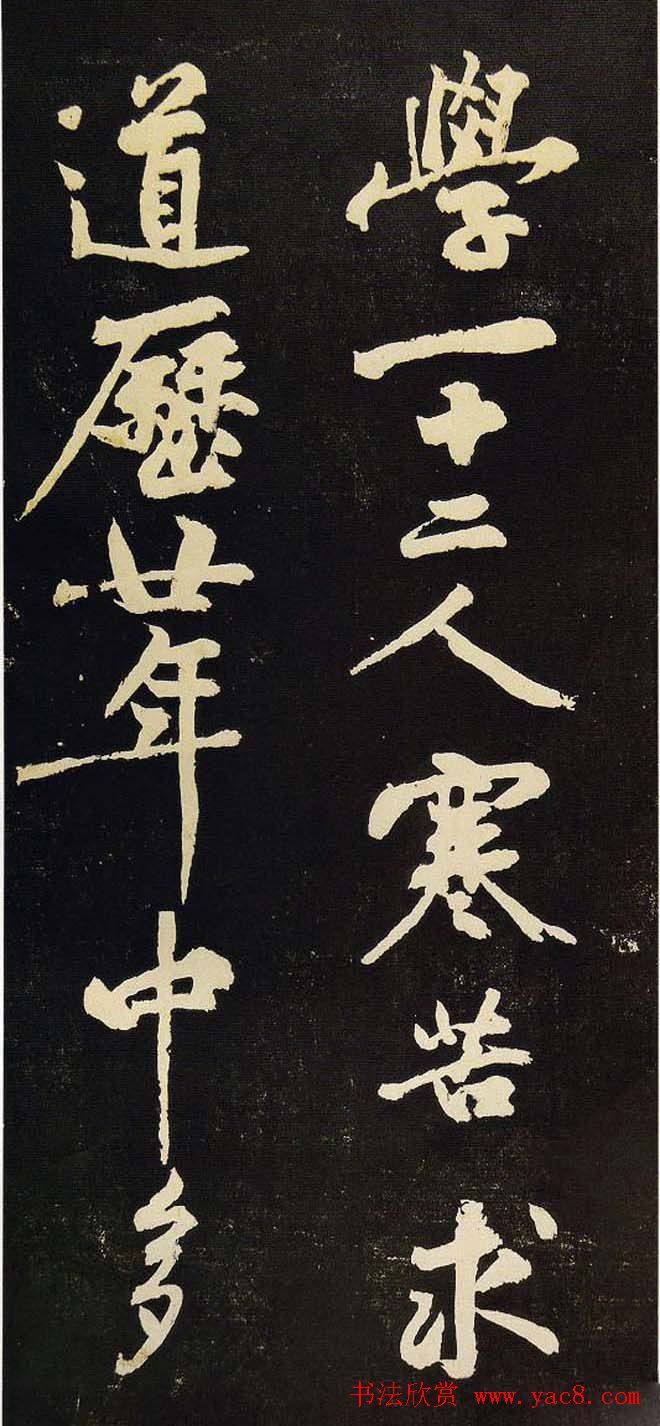 學一十二人寒苦求
道歷廿年中多
书法欣赏 www.yac8.com